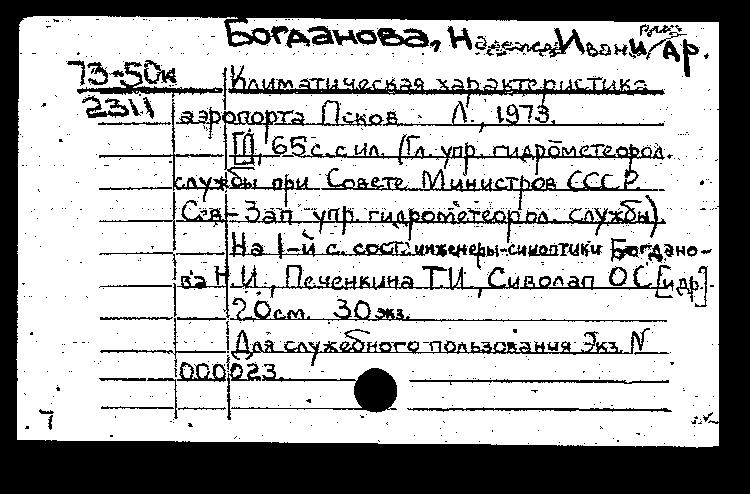 Богданова, Надежда Ивани/др.
73-50к
2311
Климатическая характеристика
аэропорта Псков. Л., 1973.
[1], 65 с. с ил. (Гл. упр. гидрометеорол.
службы при Совете Министров СССР.
Сев-Зап упр. гидрометеорол. службы).
На 1-й с. сост. инженеры-синоптики Богдано-
ва Н.И., Печенкина Т.И., Сиволап О С [и др.].
20см. 30 экз.
Для служебного пользования Экз. N
000023.
7